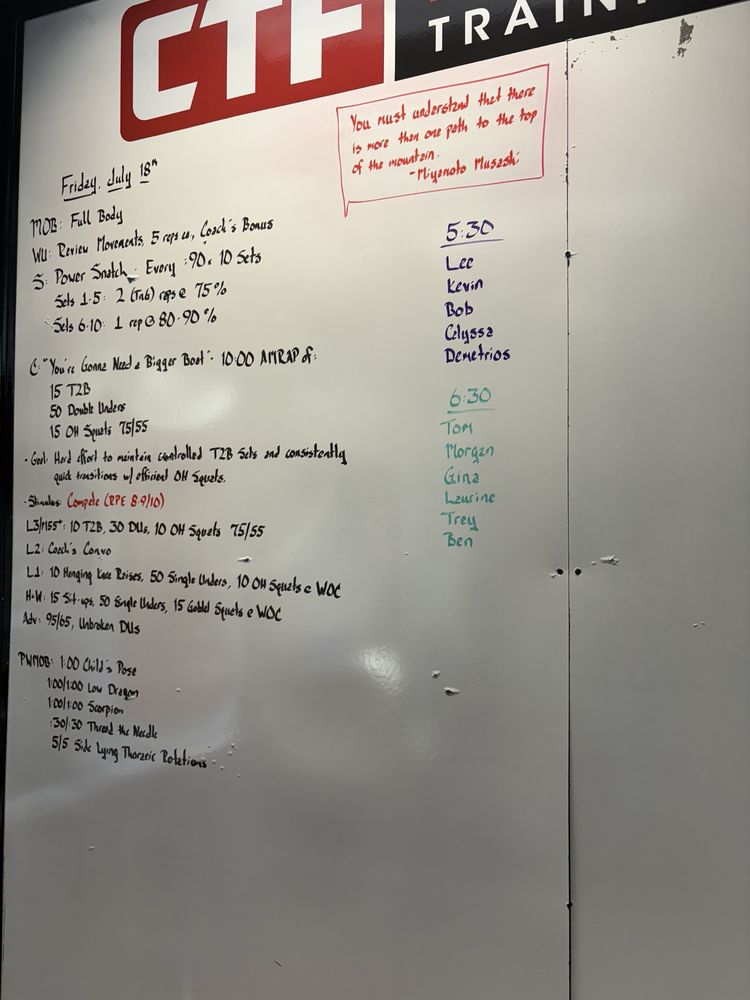 CTF
TRAIN
You must understand that there
is more than one path to the top
of the mountain.
-Miyamoto Musashi
Friday, July 18th
MOB: Full Body
WU: Review Movements, 5 reps ea, Coach's Bonus
S: Power Snatch Every :90 x 10 Sets
Sets 1-5: 2 (TnG) reps @ 75%
Sets 6-10: 1 rep @ 80-90%
C: "You're Gonna Need a Bigger Boat"- 10:00 AMRAP of:
15 T2B
50 Double Unders
15 OH Squats 75/55
- Goal: Hard effort to maintain controlled T2B Sets and consistently
quick transitions w/ efficient OH Squats.
- Stimulus: Compete (RPE 8-9/10)
L3/M55+: 10 T2B, 30 DUs, 10 OH Squats 75/55
L2: Coach's Convo
L1: 10 Hanging Knee Raises, 50 Single Unders, 10 OH Squats @ WOC
H+W: 15 Sit-ups, 50 Single Unders, 15 Goblet Squats @ WOC
Adv: 95/65, Unbroken DUs
PWMOB: 1:00 Child's Pose
1:00/1:00 Low Dragon
1:00/1:00 Scorpion
:30/:30 Thread the Needle
5/5 Side Lying Thoracic Rotations
5:30
Lee
Kevin
Bob
Celyssa
Demetrios
6:30
Tom
Morgan
Gina
Laurine
Trey
Ben